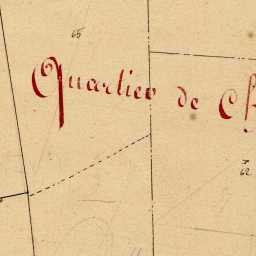 65
Quartier de
62